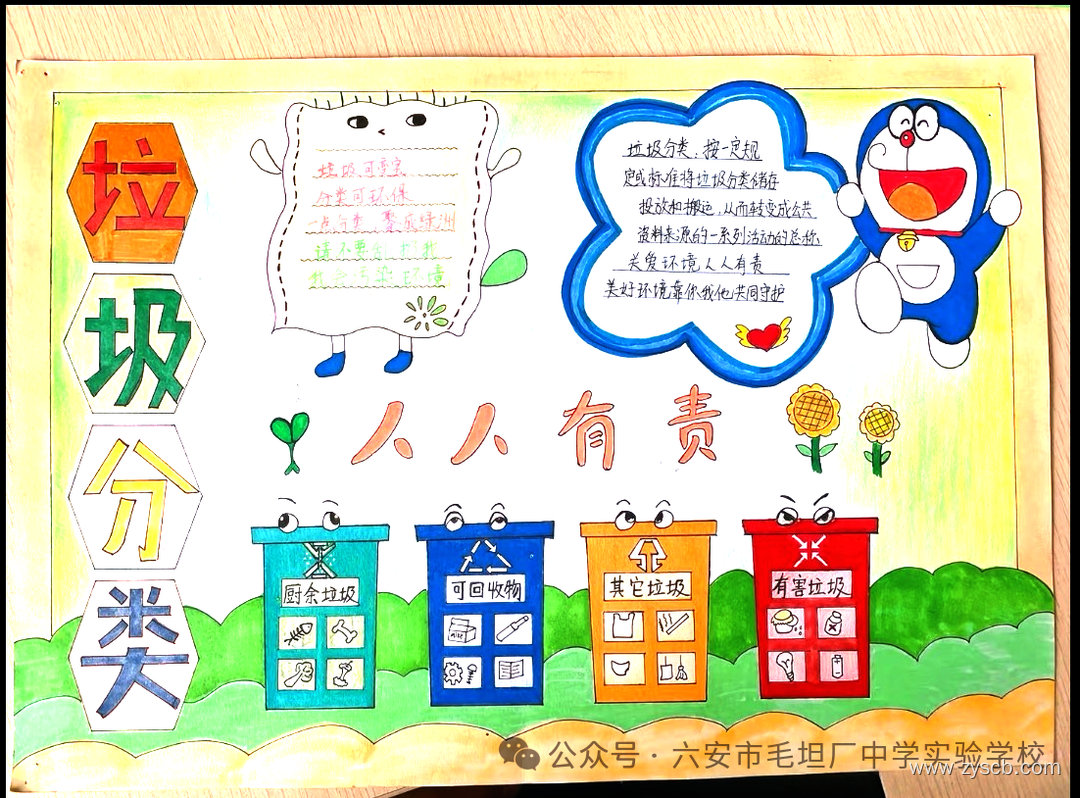 垃圾分类
垃圾可变宝
分类可环保
一点分类 聚成绿洲
请不要乱扔我
我会污染环境
垃圾分类:按一定规
定或标准将垃圾分类储存
投放和搬运,从而转变成公共
资料来源的一系列活动的总称
关爱环境人人有责
美好环境靠你我他共同守护
人人有责
厨余垃圾
可回收物
其它垃圾
有害垃圾
公众号·六安市毛坦厂中学实验学校
www.zyscb.com